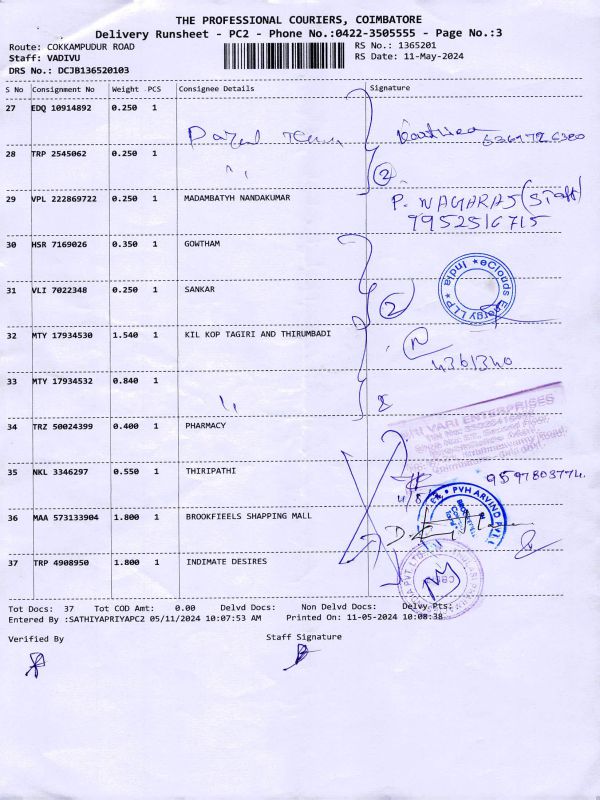 THE PROFESSIONAL COURIERS, COIMBATORE
Delivery Runsheet - PC2 - Phone No.:0422-3505555 - Page No.:3
Route: COKKAMPUDUR ROAD
RS No.: 1365201
Staff: VADIVU
RS Date: 11-May-2024
DRS No.: DCJB136520103
S No Consignment No Weight PCS Consignee Details Signature
27 EDQ 10914892 0.250 1
28 TRP 2545062 0.250 1
2
29 VPL 222869722 0.250 1 MADAMBATYH NANDAKUMAR P. NAGARAJ (Staff)
9952516715
30 HSR 7169026 0.350 1 GOWTHAM
eClouds Energy LLP * India *
31 VLI 7022348 0.250 1 SANKAR
2
32 MTY 17934530 1.540 1 KIL KOP TAGIRI AND THIRUMBADI
4361340
33 MTY 17934532 0.840 1
SRI VARI ENTERPRISES
34 TRZ 50024399 0.400 1 PHARMACY
35 NKL 3346297 0.550 1 THIRIPATHI 9597803774.
PVH ARVIND
36 MAA 573133904 1.800 1 BROOKFIEELS SHAPPING MALL
37 TRP 4908950 1.800 1 INDIMATE DESIRES
Tot Docs: 37 Tot COD Amt: 0.00 Delvd Docs: Non Delvd Docs: Delvy Pts:
Entered By :SATHIYAPRIYAPC2 05/11/2024 10:07:53 AM Printed On: 11-05-2024 10:08:38
Verified By Staff Signature